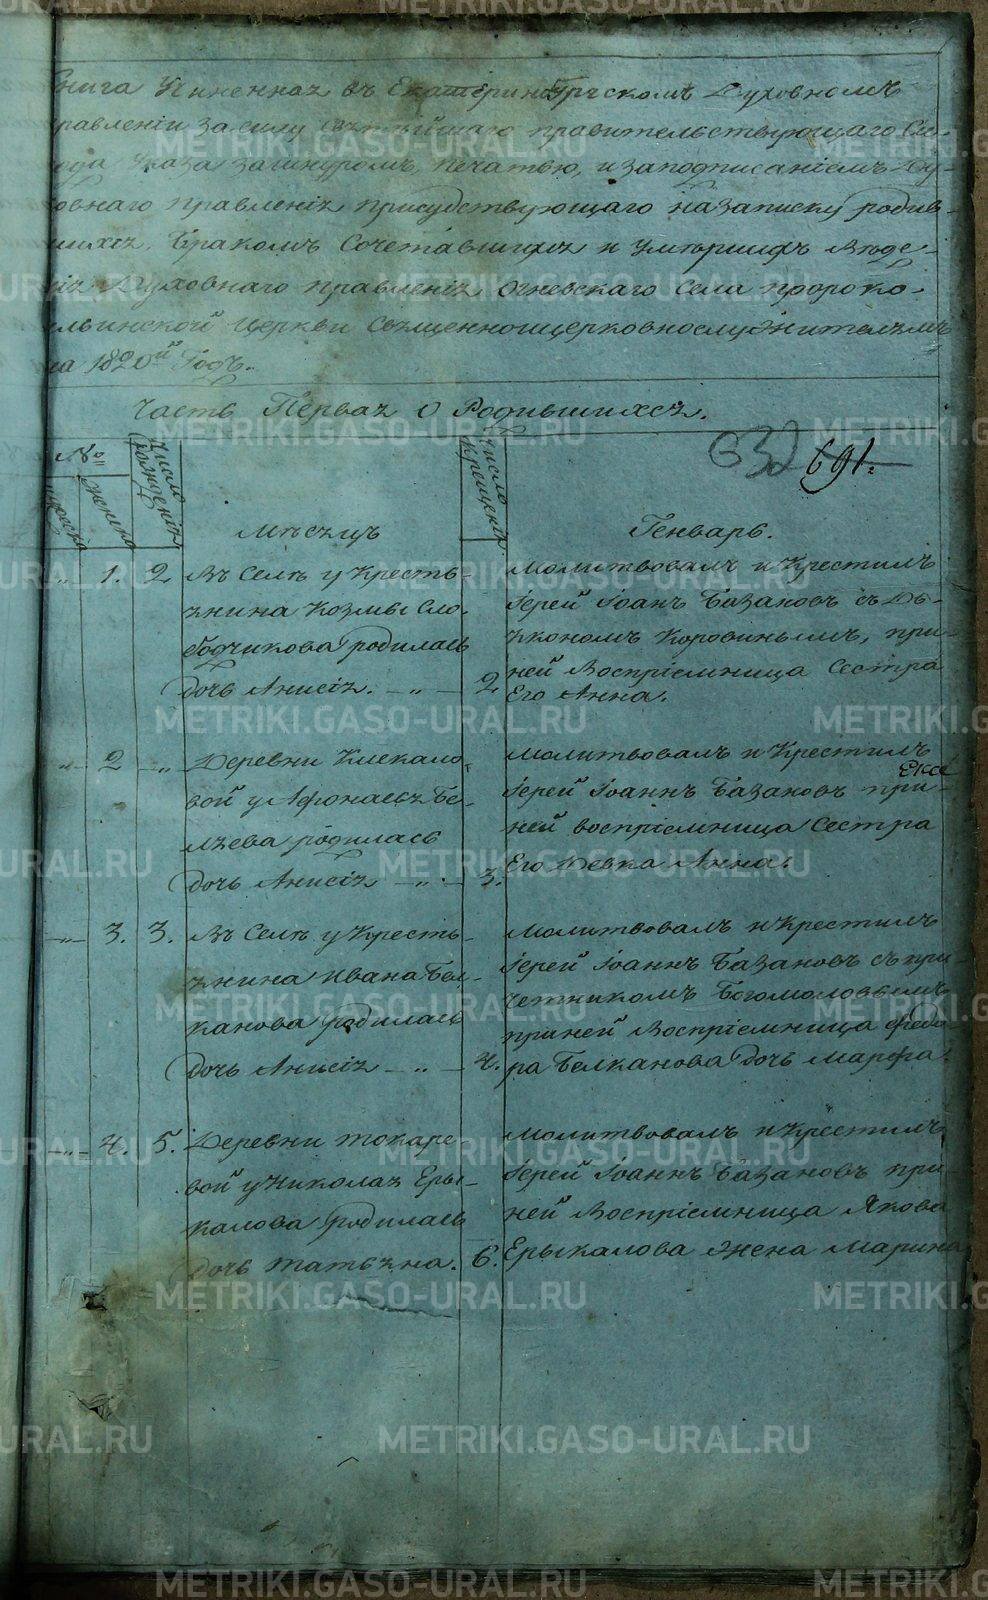 Книга Учиненная въ Екатеринбургскомъ Духовномъ
Правленіи Засилу Святѣйшаго правительствующаго Си-
нода Указа Зашнуромъ, печатью, изаподписаніемъ Ду-
ховнаго Правленія присудствующаго назаписку родив-
шихся, Бракомъ Сочетавшихся и умершихъ Вѣде-
нія Духовнаго правленія Огневскаго Села пророко-
ильинской Церкви Священноицерковнослужителямъ
на 1820й Годъ.
Часть Первая о Родившихся.
632 691.
№
мужеска
женска
Число рожденія
Число крещенія
Мѣсяцъ
Генварь.
" 1. 2 Въ Селѣ у Кресть-
янина Козмы Сло-
бодчикова родилась
дочь Анисія. — " — 2
Молитвовалъ и Крестилъ
Іерей Іоанъ Базановъ съ Дь-
якономъ Коровинымъ, при
ней Воспріемница Сестра
Его Анна.
" 2 " Деревни Клекало-
вой у Афонасья Бе-
ляева родилась
дочь Анисія — " — 3.
Молитвовалъ и Крестилъ
Іерей Іоаннъ Базановъ при
ней воспріемница Сестра
Его Девка Анна.
" 3. 3. Въ Селѣ у Кресть-
янина Ивана Бел-
канова родилась
дочь Анисія — " — 4.
Молитвовалъ и Крестилъ
Іерей Іоаннъ Базановъ съ при-
четникомъ Богомоловымъ
приней Воспріемница Федо-
ра Белканова дочь Марфа.
" 4. 5. Деревни токаре
вой у Николая Еры-
калова родилась
дочь татьяна. 6.
Молитвовалъ и Крестилъ
Іерей Іоаннъ Базановъ при-
ней Воспріемница Якова
Ерыкалова жена Марина
METRIKI.GASO-URAL.RU